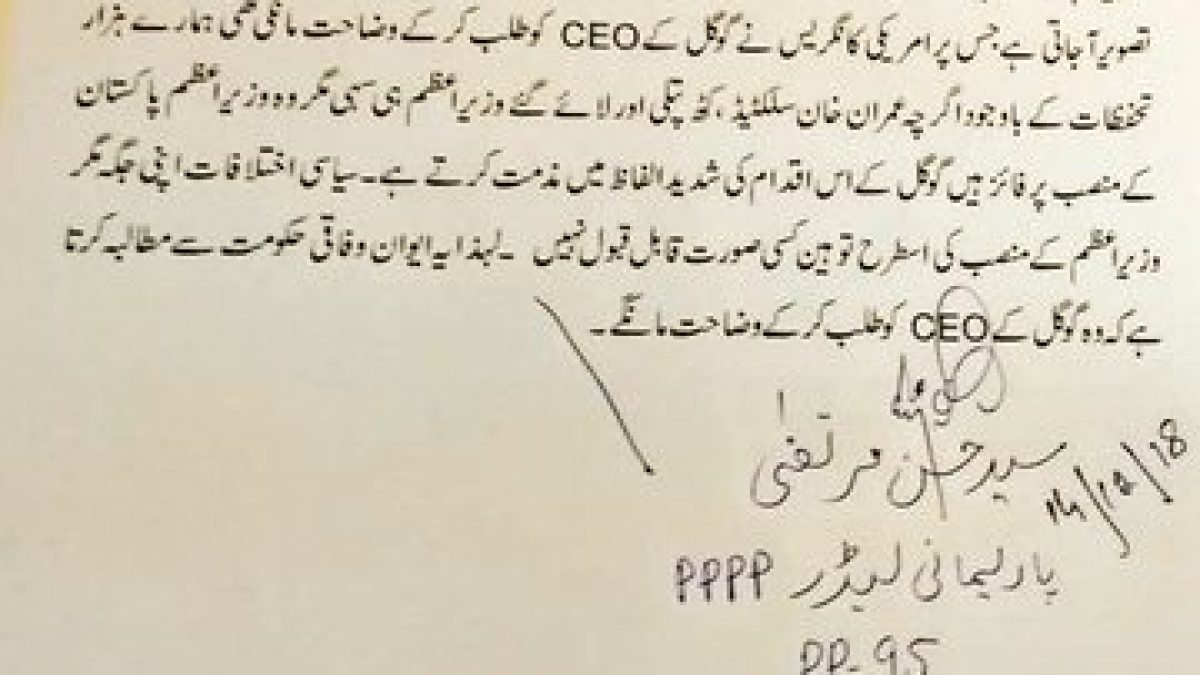 تصویر آجاتی ہے جس پر امریکی کانگریس نے گوگل کے CEO کو طلب کر کے وضاحت مانگی تھی ہمارے ہزار
تحفظات کے باوجود اگر چہ عمران خان سلکٹیڈ ، کٹھ پتلی اور لائے گئے وزیراعظم ہی سہی مگر وہ وزیراعظم پاکستان
کے منصب پر فائز ہیں گوگل کے اس اقدام کی شدید الفاظ میں مذمت کرتے ہے۔ سیاسی اختلافات اپنی جگہ مگر
وزیراعظم کے منصب کی اسطرح توہین کسی صورت قابل قبول نہیں ۔ لہذا یہ ایوان وفاقی حکومت سے مطالبہ کرتا
ہے کہ وہ گوگل کے CEO کو طلب کر کے وضاحت مانگے ۔
سید حسن مرتضیٰ
14/12/18
پارلیمانی لیڈر PPPP
PP-95